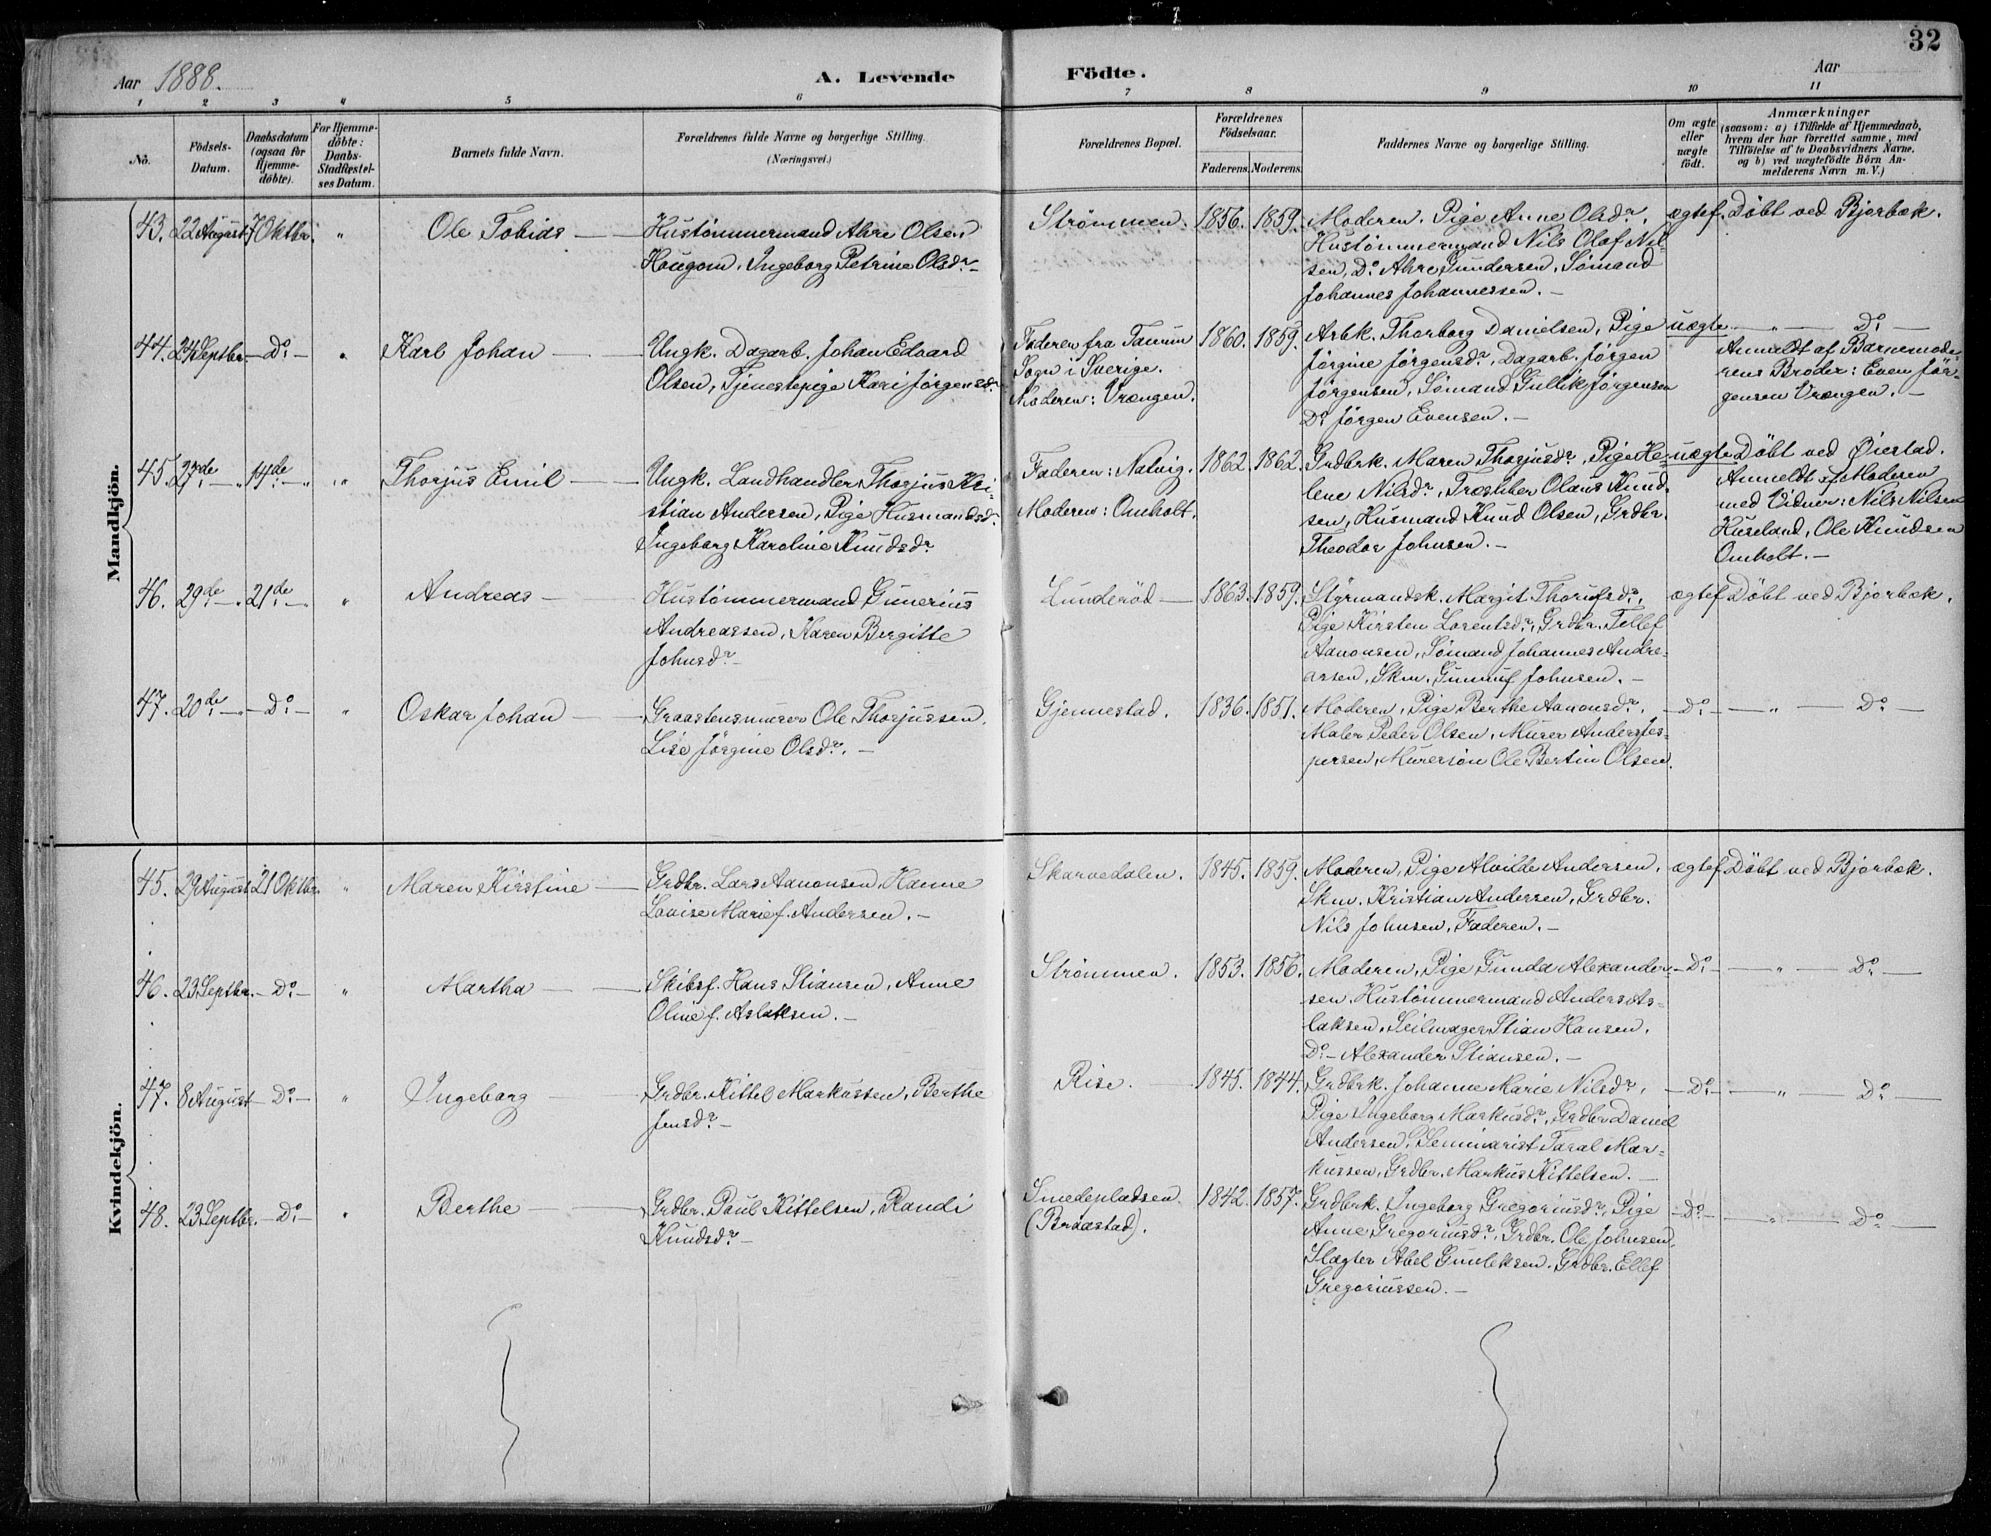 32
Aar 1888. A. Levende Födte. Aar
1 2 3 4 5 6 7 8 9 10 11
No.
Födsels-
Datum.
Daabsdatum
(ogsaa for
Hjemme-
döbte).
For Hjemme-
döbte:
Daabs-
Stadfæstel-
ses Datum.
Barnets fulde Navn.
Forældrenes fulde Navne og borgerlige Stilling.
(Næringsvei.)
Forældrenes Bopæl.
Forældrenes
Födselsaar.
Faderens. Moderens.
Faddernes Navne og borgerlige Stilling.
Om ægte
eller
uægte
födt.
Anmærkninger
(saasom: a) i Tilfælde af Hjemmedaab,
hvem der har forrettet samme, med
Tilföielse af to Daabsvidners Navne,
og b) ved uægtefödte Börn An-
melderens Navn m. V.)
Mandkjön.
43. 22 August 7 Oktbr. " Ole Tobias —
Hustømmermand Ahre Olsen
Hougom, Ingeborg Petrine Olsdr. —
Strømmen. 1856. 1859.
Moderen. Pige Anne Olsdr.,
Hustømmermand Nils Olaf Nil-
sen, Do Ahre Gundersen, Sømand
Johannes Johannessen. —
ægtef. Döbt ved Bjorbæk.
44. 24 Septbr. — Do — " Karl Johan —
Ungk. Dagarb. Johan Edvard
Olsen, Tjenestepige Kari Jørgensdr.
Faderen fra Tanum
Sogn i Sverige.
Moderen: Vrængen.
1860. 1859.
Arbk. Thorborg Danielsen, Pige
Jørgine Jørgensdr., Dagarb. Jørgen
Jørgensen, Sømand Gullik Jørgensen
Do Jørgen Evensen. —
uægte — " — Do —
Anmeldt af Barnemode-
rens Broder: Even Jör-
gensen Vrængen. —
45. 27de — " 14de — " " Thorjus Emil —
Ungk. Landhandler Thorjus Kri-
stian Andersen, Pige Husmandsdr.
Ingeborg Karoline Knudsdr.
Faderen: Natvig.
Moderen: Omholt.
1862. 1862.
Grdbrk. Maren Thorjusdr., Pige He-
lene Nilsdr., Træskiber Olaus Knud-
sen, Husmand Knud Olsen, Grdbr.
Theodor Johnsen. —
uægte Döbt ved Öiestad.
Anmeldt af Moderen
med Vidner: Nils Nilsen
Huseland, Ole Knudsen
Omholt. —
46. 29de — " 21de — " Andreas —
Hustømmermand Gunerius
Andreassen, Karen Bergitte
Johnsdr. —
Lunderød — 1863. 1859.
Styrmandsk. Margit Thorufsdr.,
Pige Kirsten Lorentsdr., Grdbr. Tellef
Aanonsen, Sømand Johannes Andre-
assen, Skm. Gunnuf Johnsen. —
ægtef Döbt ved Bjorbæk.
47. 20de — " — Do — " Oskar Johan —
Graastensmurer Ole Thorjussen.
Lise Jørgine Olsdr. —
Gjennestad. 1836. 1851.
Moderen, Pige Berthe Aanonsdr.,
Maler Peder Olsen, Murer Anders Jes-
persen, Murersøn Ole Bertin Olsen.
— Do — — " — Do —
Kvindekjön.
45. 29 August 21 Oktbr. " Maren Kirstine —
Grdbr. Lars Aanonsen, Hanne
Lovise Marie f. Andersen. —
Skarvedalen. 1845. 1859.
Moderen, Pige Alvilde Andersen,
Skm. Kristian Andersen, Grdbr.
Nils Johnsen, Faderen. —
ægtef Döbt ved Bjorbæk.
46. 23 Septbr. — Do — " Martha —
Skibsf. Hans Stiansen, Anne
Oline f. Aslaksen. —
Strømmen. 1853. 1856.
Moderen, Pige Gunda Alexander-
sen. Hustømmermand Anders As-
laksen, Seilmager Stian Hansen,
Do — Alexander Stiansen. —
— Do — — " — Do —
47. 8 August — Do — " Ingeborg —
Grdbr. Kittel Markussen, Berthe
Jensdr. —
Rise. — 1845. 1844.
Grdbrk. Johanne Marie Nilsdr.,
Pige Ingeborg Markusdr., Grdbr. Daniel
Andersen, Seminarist Taral Mar-
kussen, Grdbr. Markus Kittelsen. —
— Do — — " — Do —
48. 23 Septbr. — Do — " Berthe —
Grdbr. Paul Kittelsen, Randi
Knudsdr. —
Smedepladsen
(Braastad).
1842. 1857.
Grdbrk. Ingeborg Gregoriusdr., Pige
Anne Gregoriusdr., Grdbr. Ole Johnsen,
Slagter Abel Gunleksen. Grdbr. Ellef
Gregoriussen. —
— Do — — " — Do —